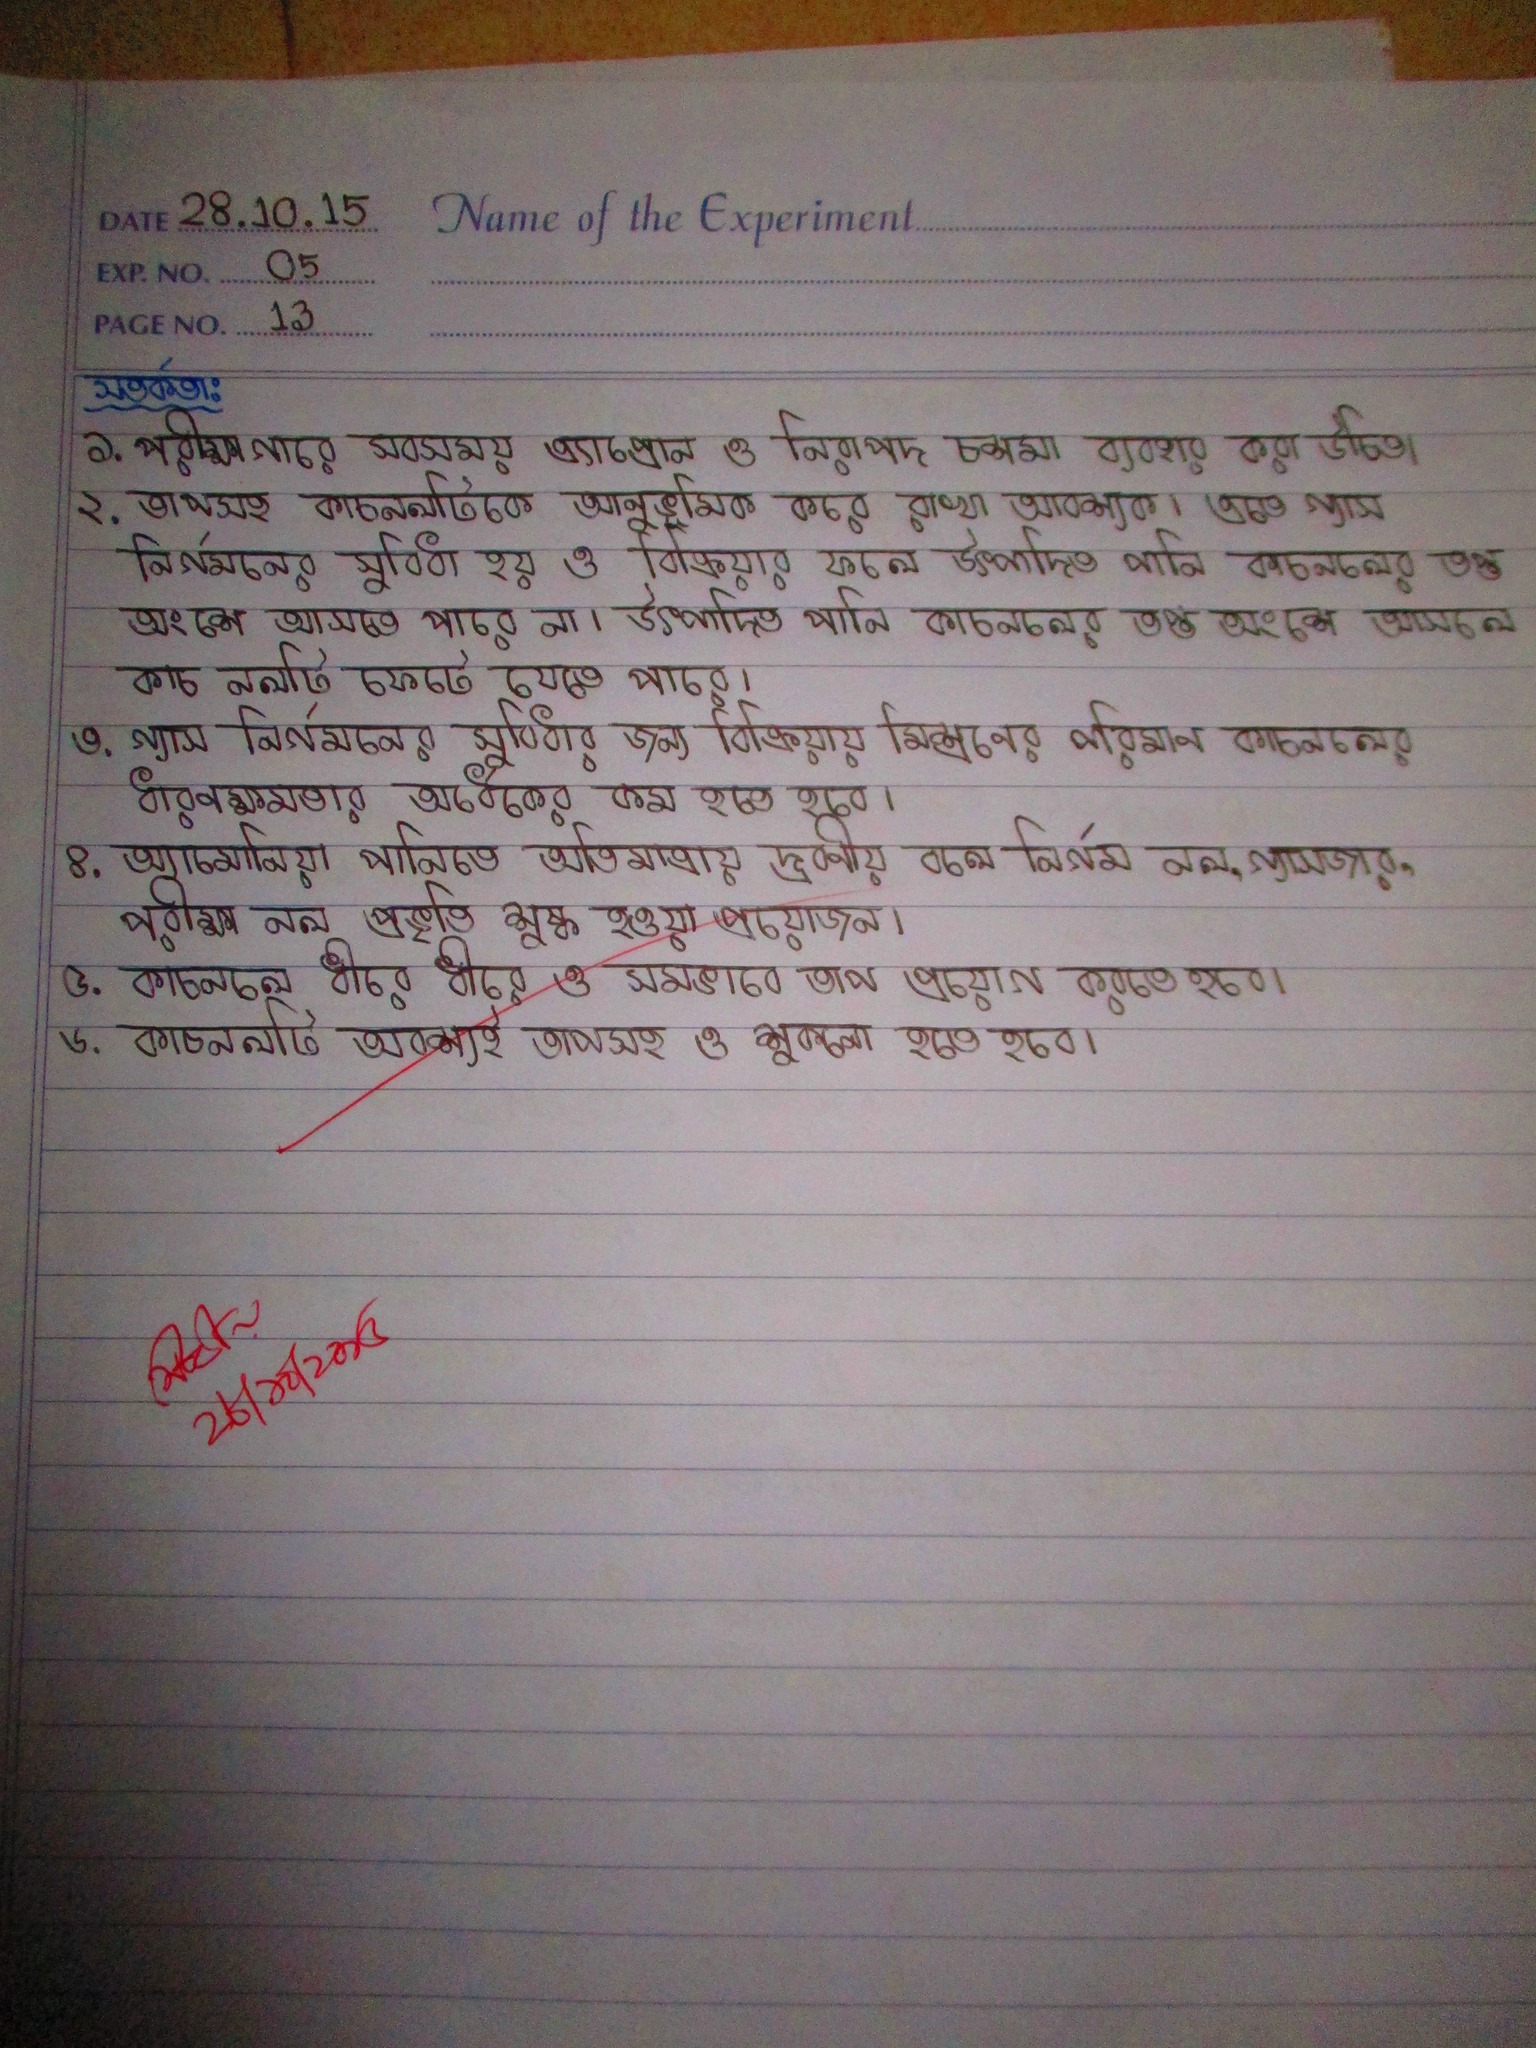 DATE 28.10.15 Name of the Experiment
EXP. NO. 05
PAGE NO. 13
সতর্কতাঃ
১. পরীক্ষাগারে সবসময় এ্যাপ্রোন ও নিরাপদ চশমা ব্যবহার করা উচিত।
২. তাপসহ কাচনলটিকে আনুভূমিক করে রাখা আবশ্যক। এতে গ্যাস
নির্গমনের সুবিধা হয় ও বিক্রিয়ার ফলে উৎপাদিত পানি কাচনলের তপ্ত
অংশে আসতে পারে না। উৎপাদিত পানি কাচনলের তপ্ত অংশে আসলে
কাচ নলটি ফেটে যেতে পারে।
৩. গ্যাস নির্গমনের সুবিধার জন্য বিক্রিয়ায় মিশ্রণের পরিমাণ কাচনলের
ধারণক্ষমতার অর্ধেকের কম হতে হবে।
৪. অ্যামোনিয়া পানিতে অতিমাত্রায় দ্রবণীয় বলে নির্গম নল, গ্যাসজার,
পরীক্ষা নল প্রভৃতি শুষ্ক হওয়া প্রয়োজন।
৫. কাচনলে ধীরে ধীরে ও সমভাবে তাপ প্রয়োগ করতে হবে।
৬. কাচনলটি অবশ্যই তাপসহ ও শুকনো হতে হবে।
২৮/১০/২০১৫